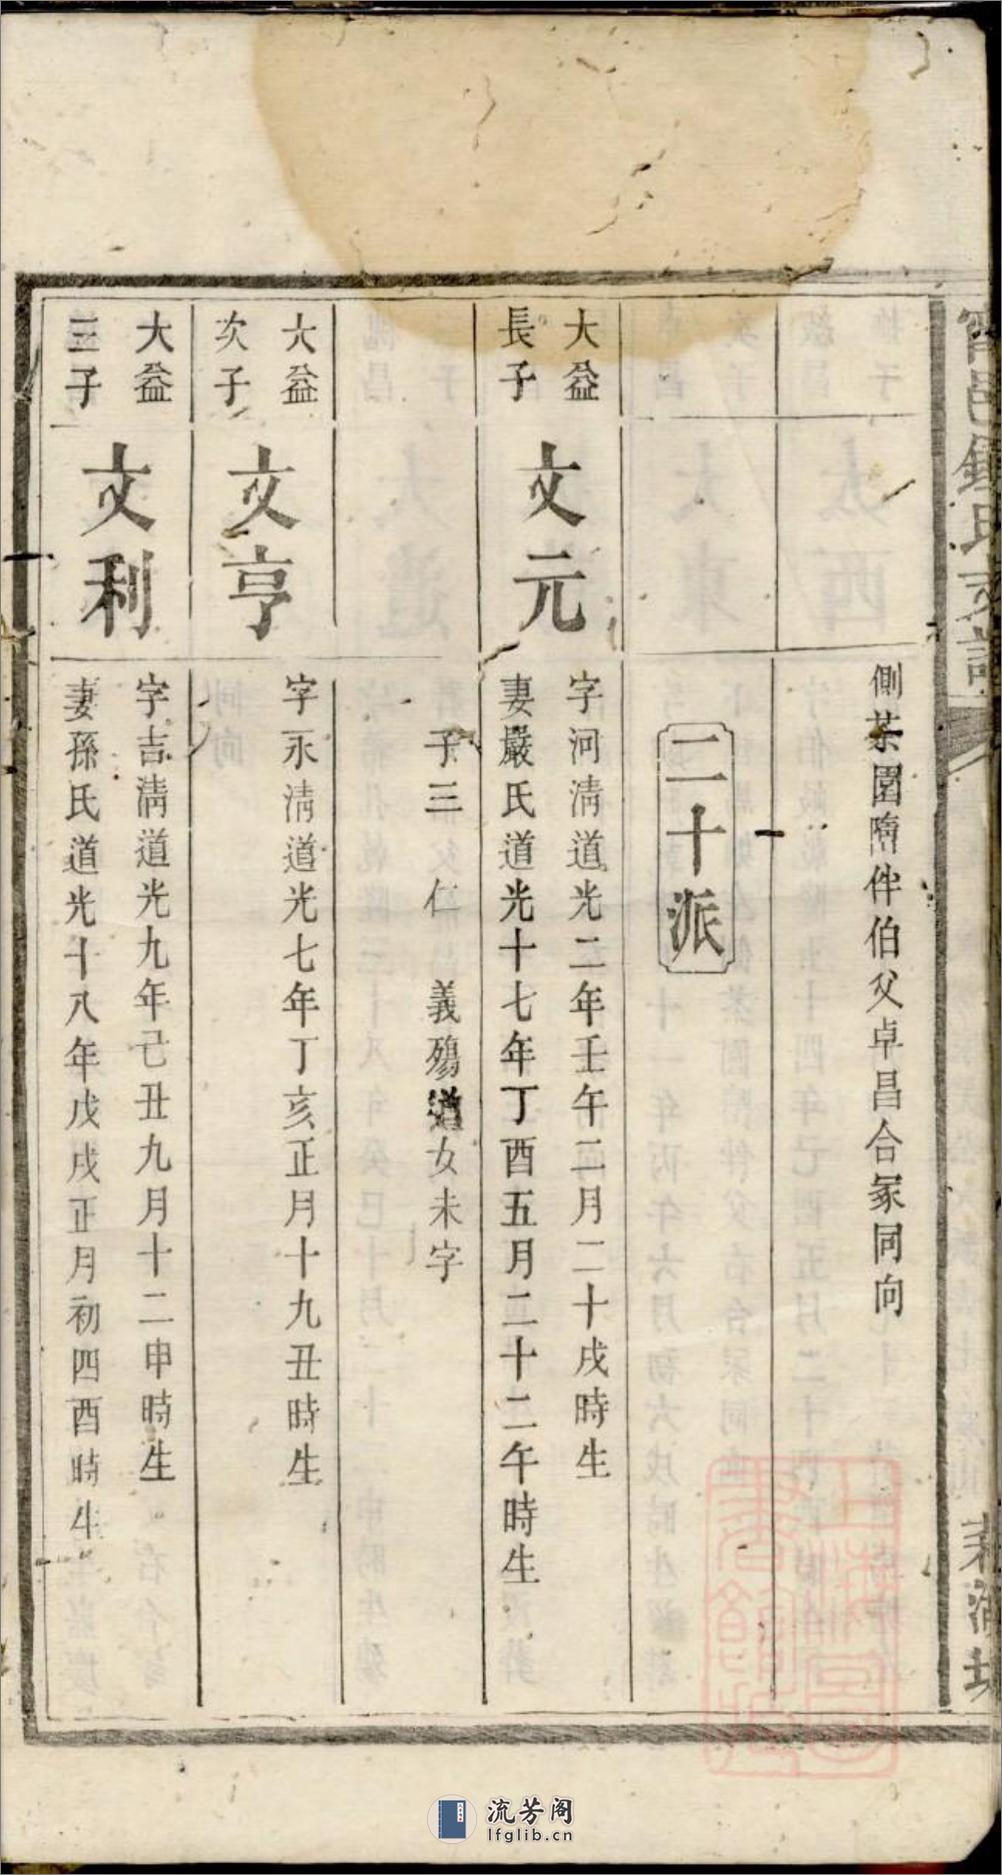 側茶園隋伴伯父卓昌合冢同向
二十派
大益
長子
文元
字河清道光二年壬午二月二十戌時生
妻嚴氏道光十七年丁酉五月二十二午時生
子三 仁 義殤 道 女未字
大益
次子
文亨
字永清道光七年丁亥正月十九丑時生
大益
三子
文利
字吉清道光九年己丑九月十二申時生
妻孫氏道光十八年戊戌正月初四酉時生
流芳阁
lfglib.cn